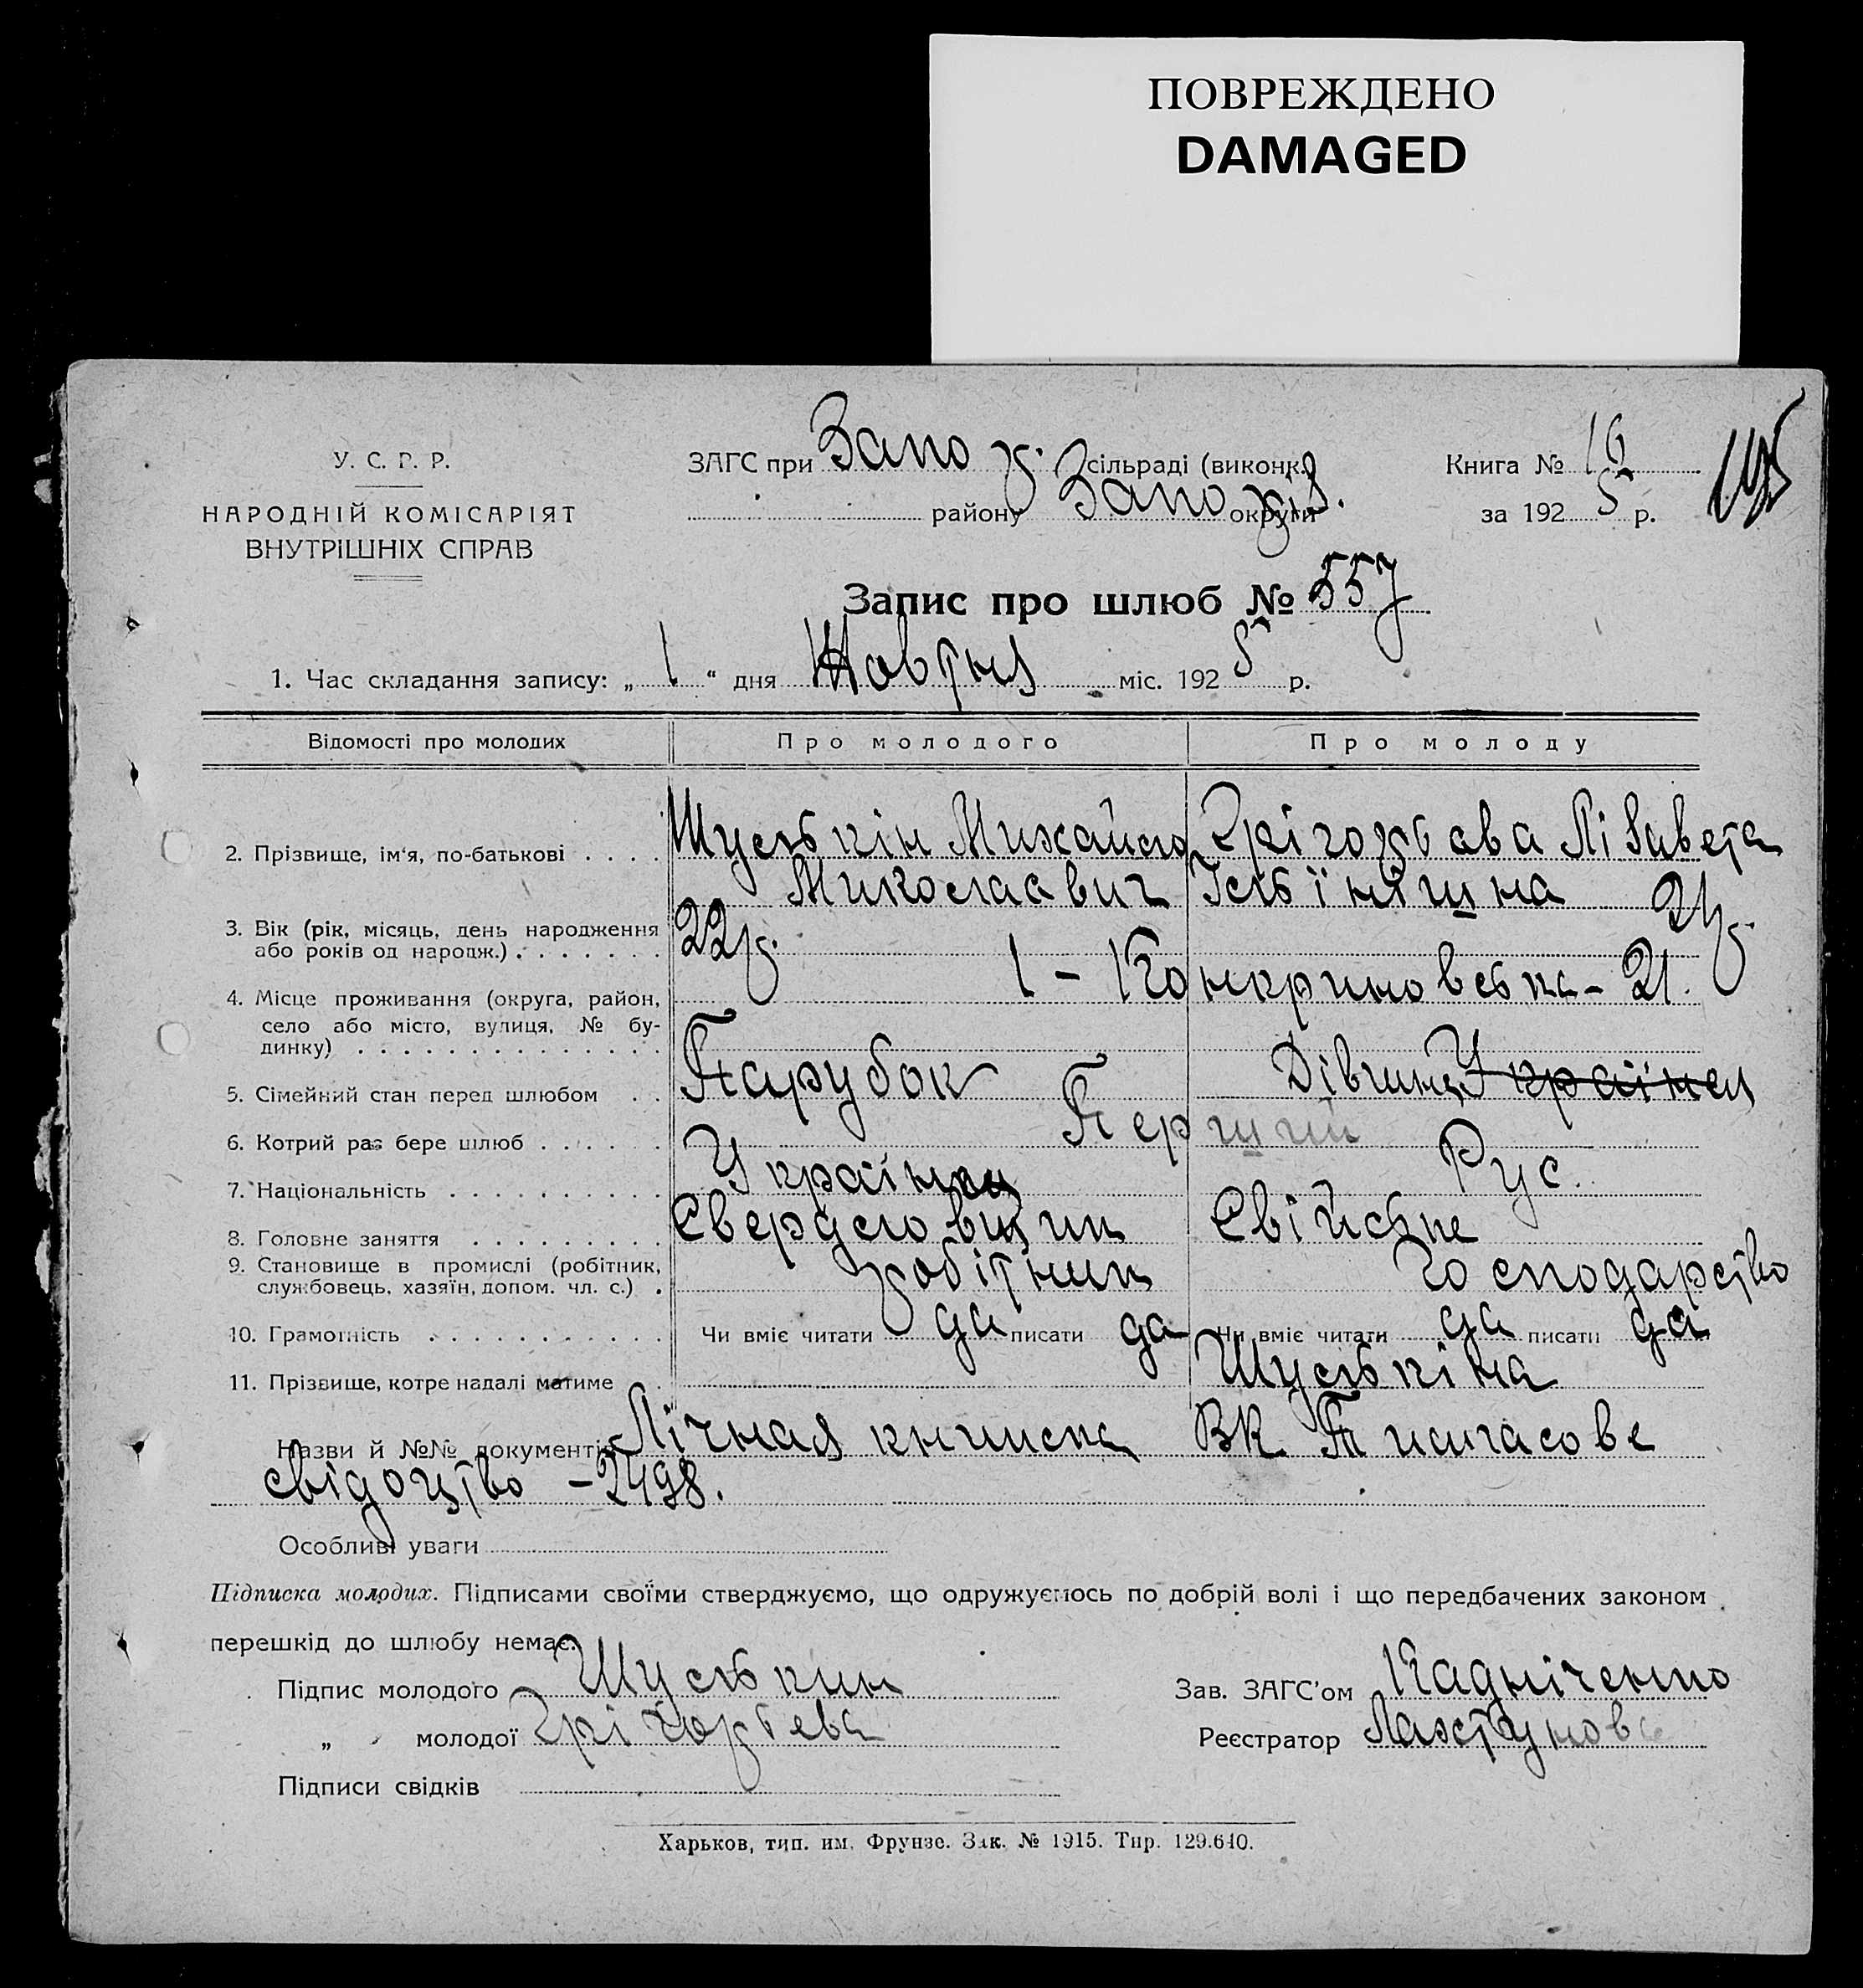 ПОВРЕЖДЕНО
DAMAGED
У. С. Р. Р.
НАРОДНІЙ КОМІСАРІЯТ
ВНУТРІШНІХ СПРАВ
ЗАГС при Запо сільраді (виконк.)
району Запоріз. округи
Книга № 16
за 1925 р.
195
Запис про шлюб № 557
1. Час складання запису: „ 1 “ дня Жовтня міс. 1925 р.
Відомості про молодих Про молодого Про молоду
2. Прізвище, ім'я, по-батькові . . . . Шулькін Михайло Грігорьєва Лізавета
Миколаєвич Ільїнішна
3. Вік (рік, місяць, день народження 22р. 21р.
або років од народж.) . . . . . . .
4. Місце проживання (округа, район, 1 – Конкриновська – 21.
село або місто, вулиця, № бу-
динку) . . . . . . . . . . . . . .
5. Сімейний стан перед шлюбом . . Парубок Дівчина Українка
6. Котрий раз бере шлюб . . . . . . Перший
7. Національність . . . . . . . . . . Українець Рус.
8. Головне заняття . . . . . . . . . Свердловщик Свійське
9. Становище в промислі (робітник, робітник господарство
службовець, хазяїн, допом. чл. с.) .
10. Грамотність . . . . . . . . . . . Чи вміє читати да писати да Чи вміє читати да писати да
11. Прізвище, котре надалі матиме Шулькіна
Назви й №№ документів Лічная книжка ВК
свідоцтво – 2498.
Особливі уваги
Підписка молодих. Підписами своїми стверджуємо, що одружуємось по добрій волі і що передбачених законом
перешкід до шлюбу немає.
Підпис молодого Шулькин
Зав. ЗАГС'ом Кадніченко
„ молодої Грігорьева
Реєстратор Лахтунова
Підписи свідків
Харьков, тип. им. Фрунзе. Зак. № 1915. Тир. 129.640.